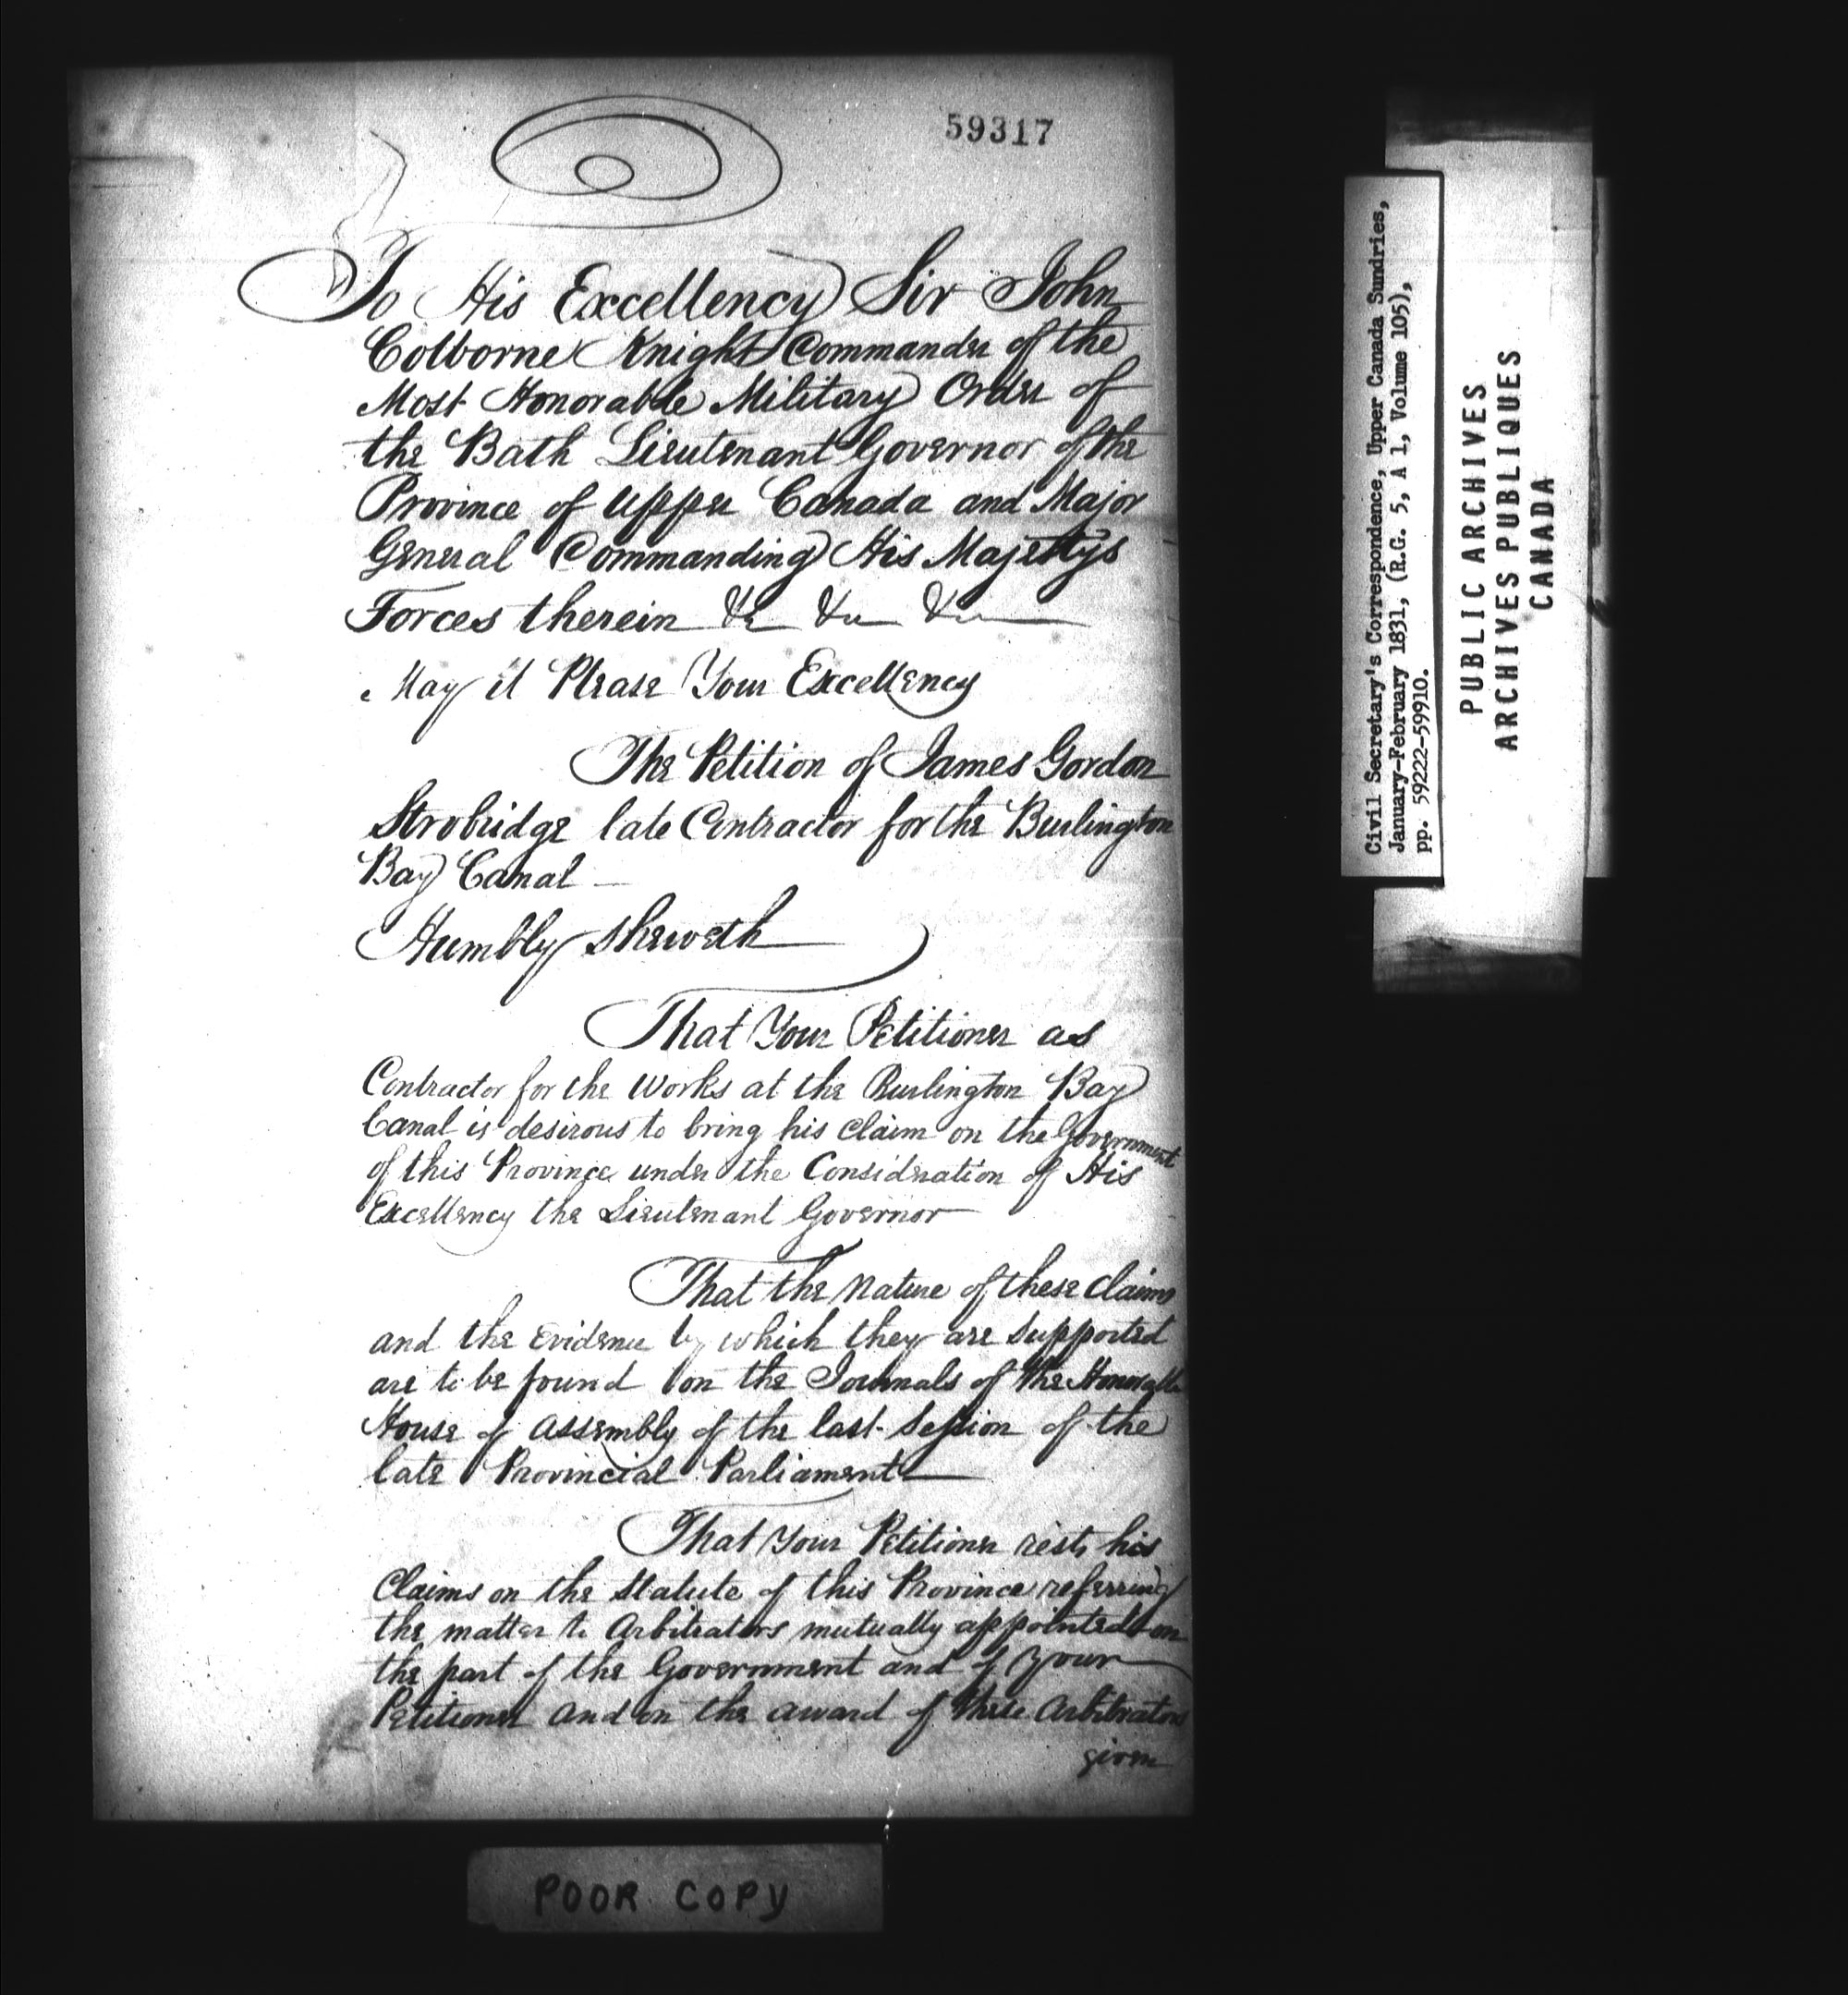 59317
To His Excellency Sir John
Colborne Knight Commander of the
Most Honorable Military Order of
the Bath Lieutenant Governor of the
Province of Upper Canada and Major
General Commanding His Majestys
Forces therein &c &c &c
May it Please Your Excellency
The Petition of James Gordon
Strobridge late Contractor for the Burlington
Bay Canal
Humbly Sheweth
That Your Petitioner as
Contractor for the Works at the Burlington Bay
Canal is desirous to bring his Claim on the Government
of this Province under the Consideration of His
Excellency the Lieutenant Governor
That the Nature of these Claims
and the Evidence by which they are Supported
are to be found on the Journals of the Honorable
House of Assembly of the last Session of the
late Provincial Parliament
That Your Petitioner rests his
Claims on the Statute of this Province referring
the matter to Arbitrators mutually appointed on
the part of the Government and of Your
Petitioner and on the award of these Arbitrators
given
POOR COPY
Civil Secretary's Correspondence, Upper Canada Sundries,
January-February 1831, (R.G. 5, A 1, Volume 105),
pp. 59222-59910.
PUBLIC ARCHIVES
ARCHIVES PUBLIQUES
CANADA